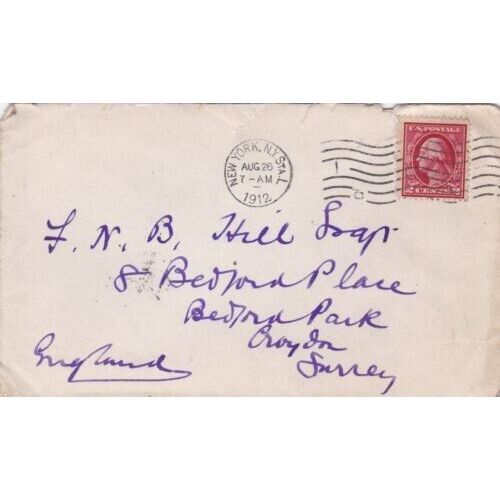 U.S. POSTAGE
2 CENTS 2
NEW YORK, N.Y. STA. L
AUG 26
7-AM
1912
F. N. B. Hill Esqr
8 Bedford Place
Bedford Park
Croydon
Surrey
England